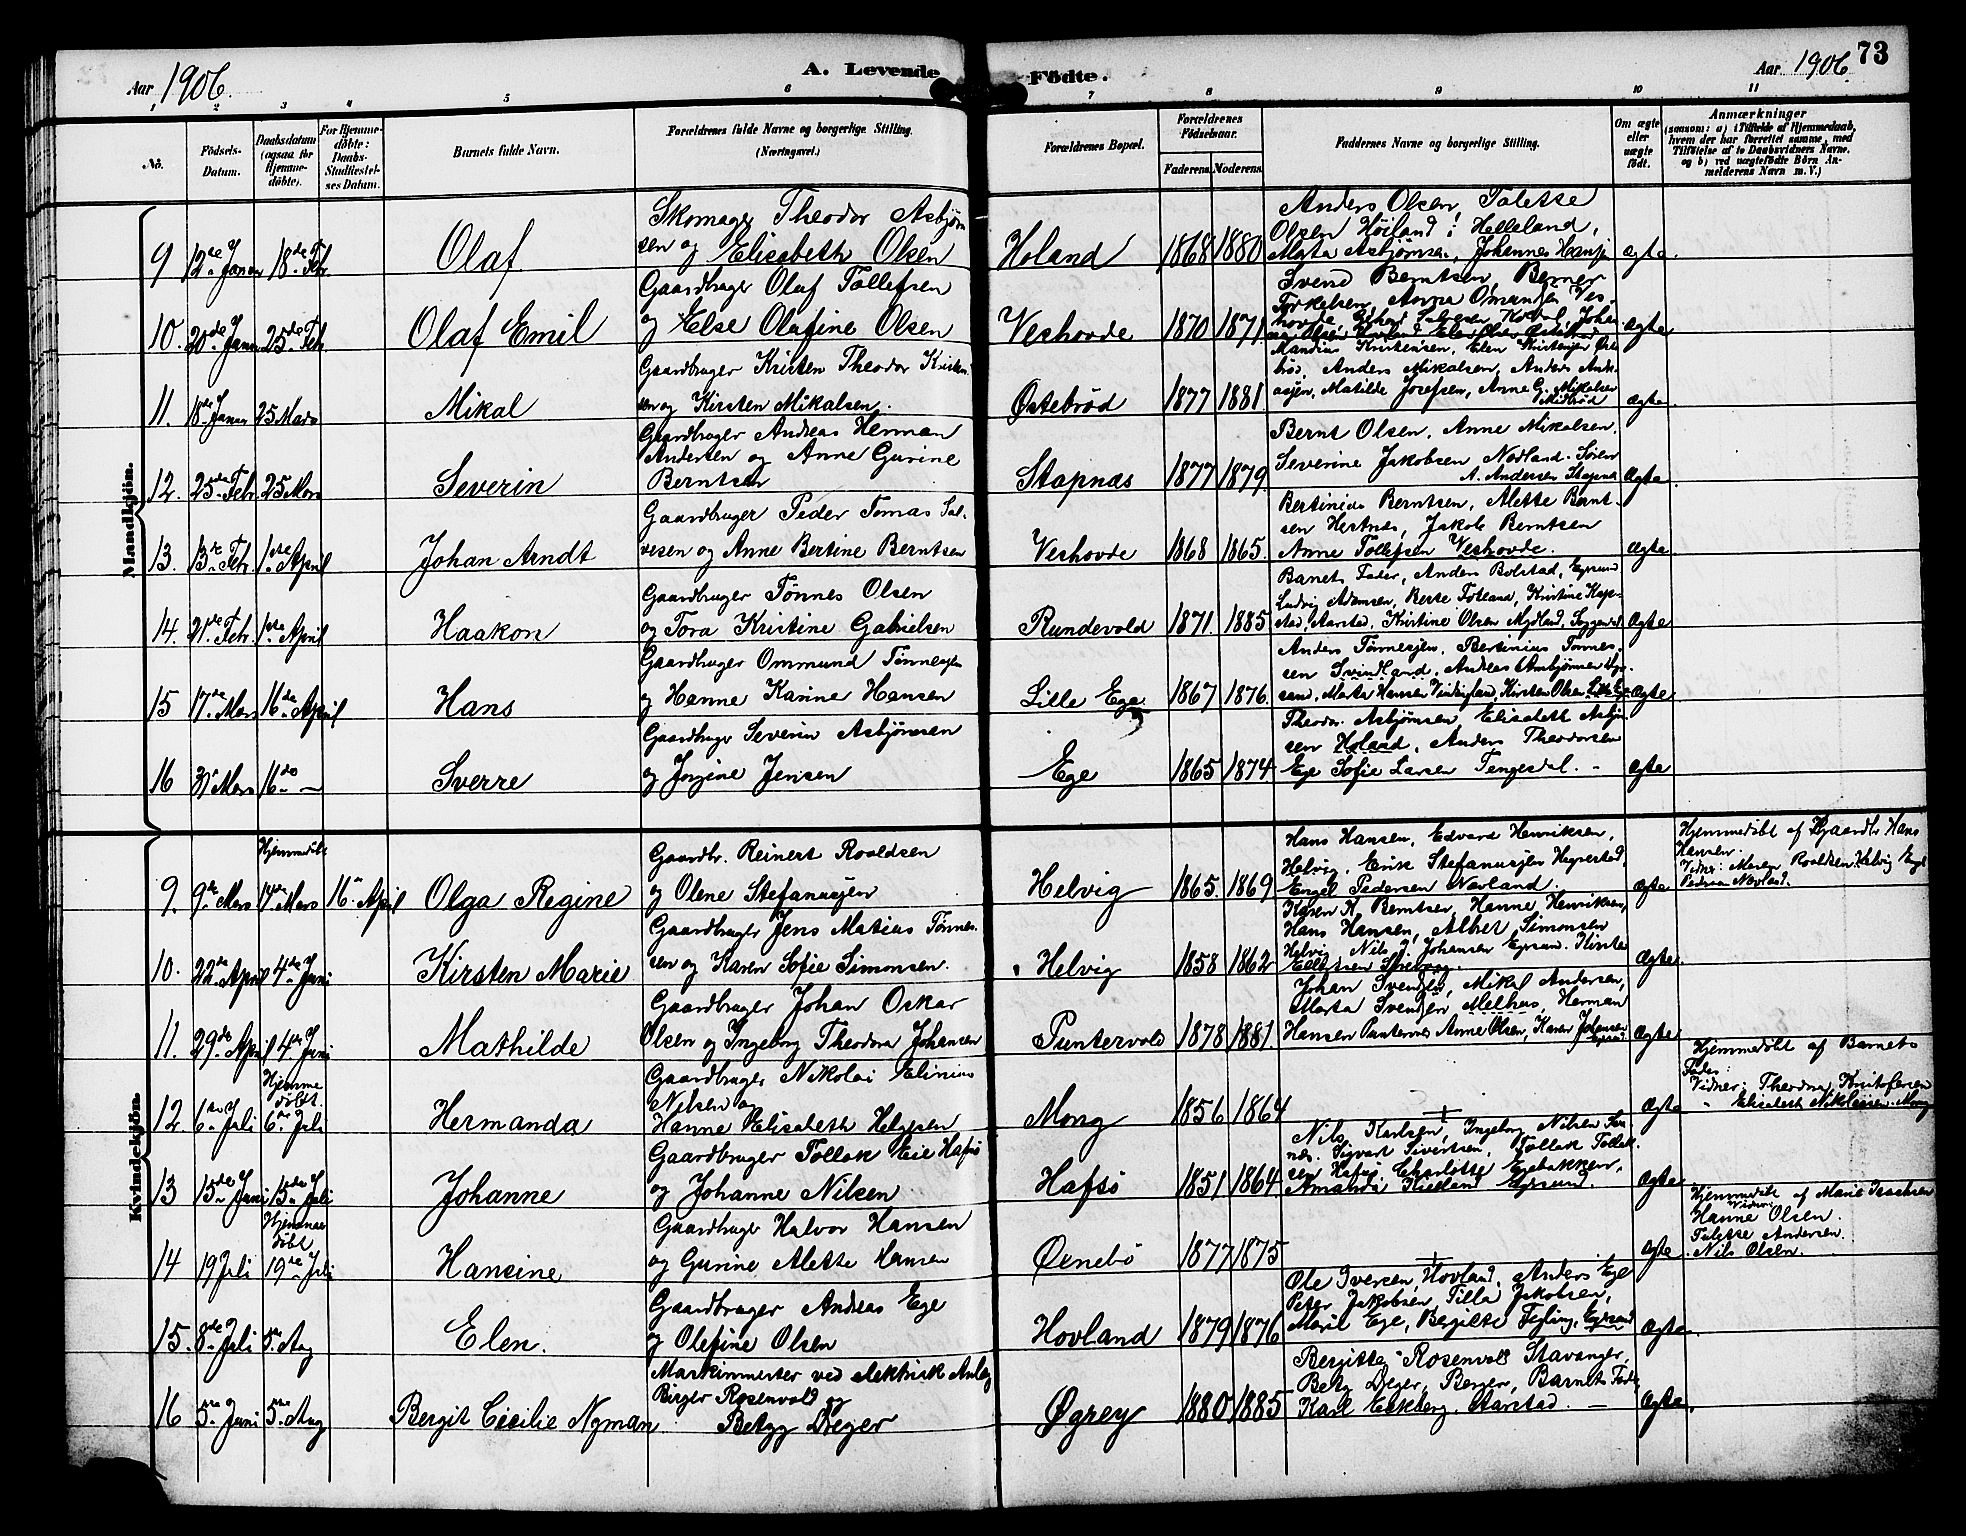 Aar 1906.
A. Levende Födte.
Aar 1906.
73
1 2 3 4 5 6 7 8 9 10 11
No.
Födsels-
Datum.
Daabsdatum
(ogsaa for
Hjemme-
döbte).
For Hjemme-
döbte:
Daabs-
Stadfæstel-
ses Datum.
Barnets fulde Navn.
Forældrenes fulde Navne og borgerlige Stilling.
(Næringsvei.)
Forældrenes Bopæl.
Forældrenes
Födselsaar.
Faderens.
Moderens.
Faddernes Navne og borgerlige Stilling.
Om ægte
eller
uægte
födt.
Anmærkninger
(saasom: a) i Tilfælde af Hjemmedaab,
hvem der har forrettet samme, med
Tilföielse af to Daabsvidners Navne,
og b) ved uægtefödte Börn An-
melderens Navn m. V.)
Mandkjön.
9 12te Januar 18de Feb.
Olaf
Skomager Theodor Asbjørn
sen og Elisabeth Olsen
Holand 1868 1880
Anders Olsen, Talette
Olsen Høiland i Helleland,
Marta Asbjørnsen, Johannes
ægte.
10. 20de Janu 25de Feb.
Olaf Emil
Gaardbruger Olaf Tollefsen
og Else Olafine Olsen
Veshovde 1870 1871
Svend Berntsen, Berner
Torkelsen, Anna Omundsen Ves-
hovde,
ægte
11. 18de Janu 25 Mars
Mikal
Gaardbruger Kristen Theodor Kristen
sen og Kirsten Mikalsen.
Østebrød 1877 1881
Mandius Kristensen, Elen Kristensen Øste
brød, Anders Mikalsen, Anders Andr-
easen, Matilde Josefsen, Anne G. Mikalsen
Midbrød
ægte.
12. 25de Feb. 25 Mars
Severin
Gaardbruger Andreas Herman
Andersen og Anne Gurine
Berntsen
Stapnæs 1877 1879.
Bernt Olsen, Anne Mikalsen,
Severine Jakobsen Nodland. Sören
A. Andersen Stapnæs
ægte
13. 13de Feb. 1ste April
Johan Arndt
Gaardbruger Peder Tomas Sal-
vesen og Anne Bertine Berntsen
Veshovde 1868 1865.
Bertinius Berntsen, Alette Bernt-
sen Hertnæs, Jakob Berntsen
Anne Tollefsen Veshovde.
ægte
14. 21de Feb. 1ste April
Haakon
Gaardbruger Tønnes Olsen
og Tora Kristine Gabrielsen
Rundevold 1871. 1885
Barnets Fader, Anders Bolstad, Egersund
Ludvig Adamsen, Berte Fotland, Kristine Kap-
stad, Aarstad, Kristine Olsen Mydland, Soggendal
ægte
15 17de Mars 16de April
Hans
Gaardbruger Ommund Tønnesen
og Hanne Karine Hansen
Lille Ege. 1867 1876.
Anders Tønnesen, Bertinius Tønnes-
sen Svindland, Andreas
Marta Hansen Kirsten Olsen Lille Ege
ægte
16 31 Mars 16de —
Sverre
Gaardbruger Severin Asbjørnsen
og Jorgine Jensen
Ege 1865 1874
Theodor Asbjørnsen, Elisabeth Asbjørn
sen Holand, Anders Theodorsen
Ege Sofie Larsen Tengesdal. –
ægte
Kvindekjön.
9. 9de Mars
Hjemmedöbt
17de Mars 16de April
Olga Regine
Gaardbr. Reinert Roaldsen
og Olene Stefanusen
Helvig 1865. 1869
Hans Hansen, Edvard Henriksen,
Helvig, Erik Stefanusen
Engel Pedersen Navland.
ægte
Hjemmedöbt af Gaardbr Hans
Hansen.
Vidner: Maren Roaldsen Helvig Engel
Pedersen Navland.
10. 22de April 4de Juni
Kirsten Marie
Gaardbruger Jens Matias Tønnes-
sen og Karen Sofie Simonsen.
Helvig 1858 1862
Karen K. Berntsen, Hanne Henriksen,
Hans Hansen, Albert Simonsen
Helvig, Nils J. Johansen Egersund.
ægte.
11. 29de April 4de Juni
Mathilde
Gaardbruger Johan Oskar
Olsen og Ingeborg Theodora Johansen
Puntervold 1878 1881.
Johan Svendsen, Mikal Andersen,
Marta Svendsen Melhus, Herman
Hansen Puntervold Anne Olsen, Karen Johansen
Egersund
ægte
12. 6te Juli
Hjemme
döbt.
6te Juli
Hermanda
Gaardbruger Nikolai Elinius
Nilsen og
Hanne Elisabeth Helgesen
Mong 1856 1864
+
ægte
Hjemmedöbt af Barnets
Fader.
Vidner: Theodora Kristofersen
" Elisabeth Nikolaisen. Mong
13 15de Juni 15de Juli
Johanne
Gaardbruger Tollak Eie Hafsø
og Johanne Nilsen
Hafsø 1851 1864
Nils Karlsen, Ingeborg Nilsen
Sigvart Sivertsen, Tollak Tollak-
sen Hafsø Charlotte Egebakken,
Amanda Kielland Egersund.
ægte
14 19 Juli
Hjemme
döbt
19de Juli
Hansine
Gaardbruger Halvor Hansen
og Gurine Alette Hansen
Øxnebø 1877 1875
+
ægte
Hjemmedöbt af Marie Isachsen
Vidner
Hanne Olsen.
Talette Andersen.
Nils Olsen.
15. 8de Juli 5te Aug
Elen.
Gaardbruger Andreas Ege
og Olefine Olsen
Hovland 1879 1876
Ole Iversen, Hovland, Anders Ege
Peter Jakobsen, Tilla Jakobsen,
Marie Ege, Bergitte Fegling, Egersund
ægte.
16 5te Juni 5te Aug
Bergit Cecilie Nyman.
Maskinmester ved elektrisk Anlæg
Birger Rosenvold og
Betzy Dreger
Øgrey 1880 1885
Bergitte Rosenvold Stavanger,
Betzy Dreger, Bergen, Barnets Fader
Karl Eckberg, Aarstad. —
ægte.